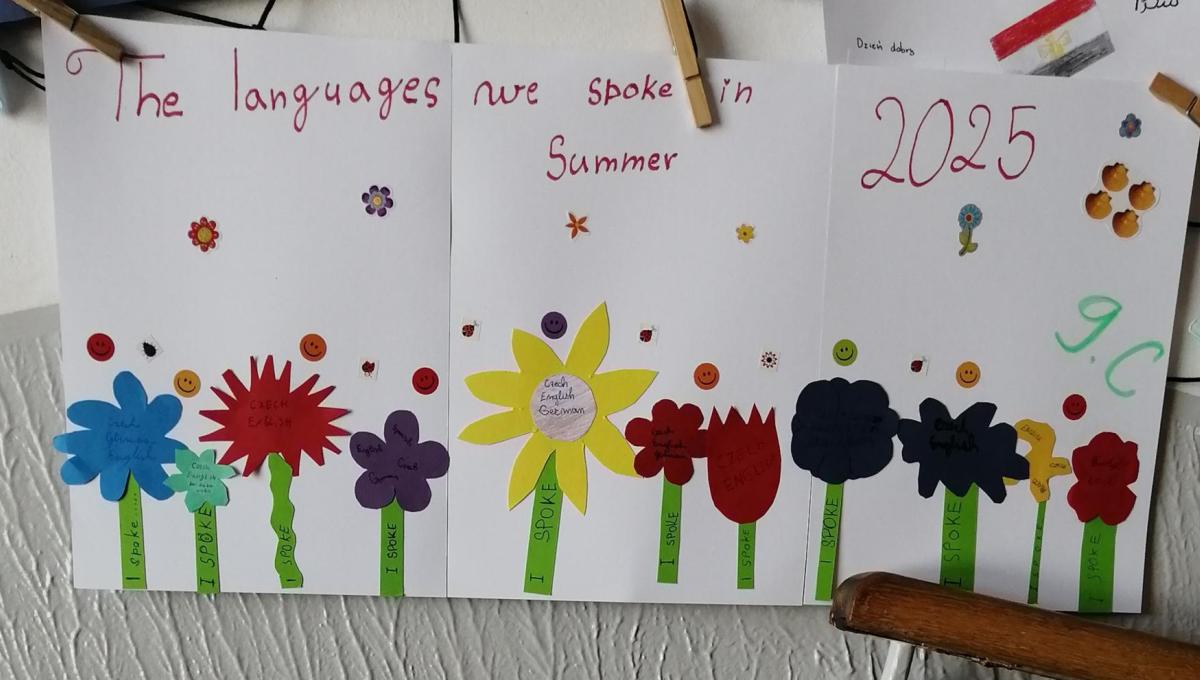 Dzień dobry
The languages we spoke in
Summer
2025
9.C
Czech
German
English
I spoke.....
Czech
English
I SPOKE
CZECH
ENGLISH
I SPOKE
English
Czech
German
I SPOKE
Czech
English
German
I SPOKE
Czech
English
German
I SPOKE
CZECH
ENGLISH
I SPOKE
I SPOKE
Czech
English
I SPOKE
I SPOKE
I SPOKE